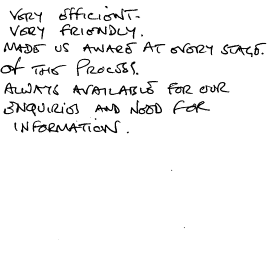 VERY EFFICIENT.
VERY FRIENDLY.
MADE US AWARE AT EVERY STAGE.
OF THE PROCESS.
ALWAYS AVAILABLE FOR OUR
ENQUIRIES AND NEED FOR
INFORMATION.